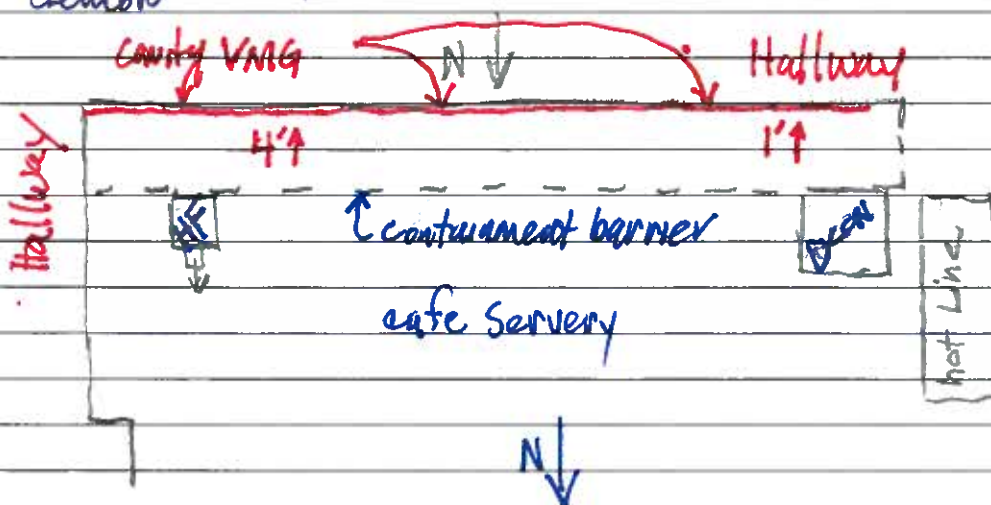 cavity VMG
N
Hallway
Hallway
4'↑
1'↑
containment barrier
cafe Servery
hot Line
N